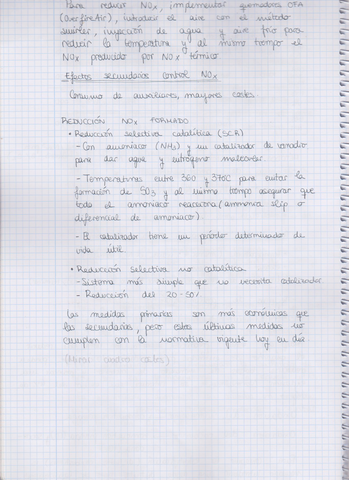 Para reducir NOx, implementar quemadores OFA
(Overfire Air), introducir el aire con el metodo
inyección de agua y aire frío para
reducir la temperatura y al mismo tiempo el
NOx producido por NOx térmico
Efectos secundarios control NOx
Consumo de auxiliares, mayores costes.
REDUCCIÓN NOx FORMADO
• Reducción selectiva catalítica (SCR)
- Con amoniaco (NH3) y un catalizador de vanadio
para dar agua y nitrógeno molecular.
- Temperaturas entre 360 y 370C para evitar la
formación de SO3 y al mismo tiempo asegurar que
todo el amoniaco reacciona (ammonia slip o
diferencial de amoniaco)
- El catalizador tiene un período determinado de
vida útil
• Reducción Selectiva no catalítica
- Sistema más simple que no necesita catalizador
- Reducción del 20-50%
Las medidas primarias son más económicas que
las secundarias, pero estas últimas medidas no
cumplen con la normativa vigente hoy en día
(Mirar cuadro costes)